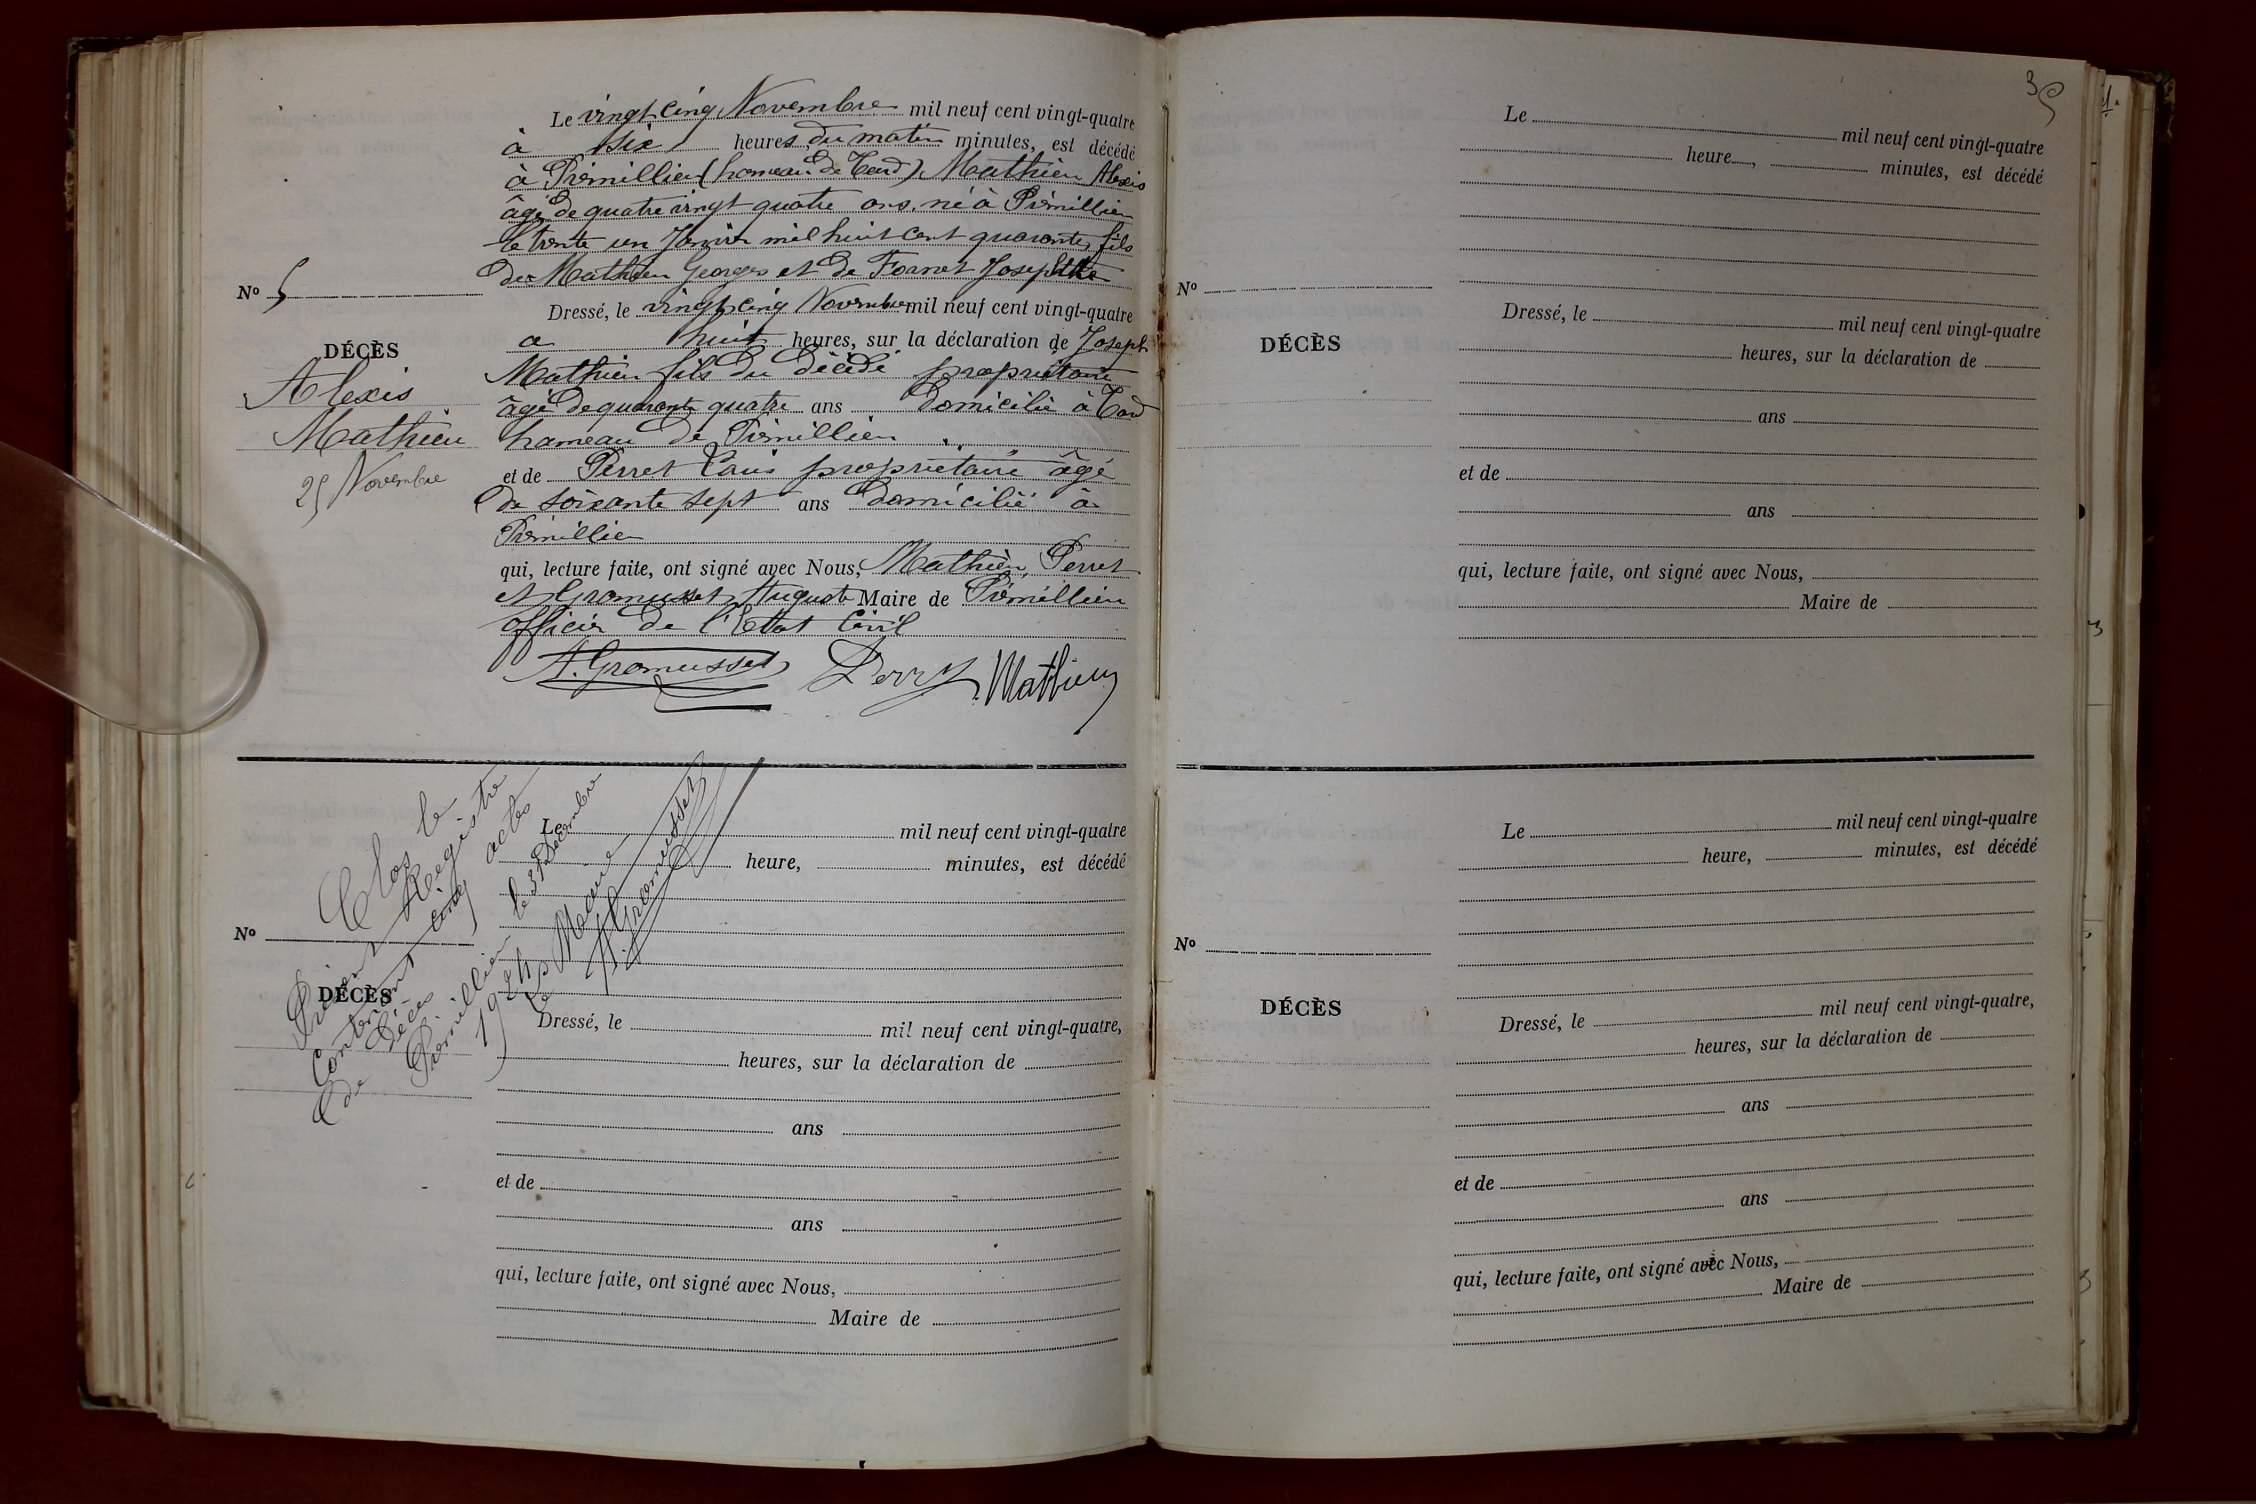 Le vingt cinq Novembre mil neuf cent vingt-quatre
à six heures du matin minutes, est décédé
à Prémillieu (hameau de Tard) Mathieu Alexis
âgé de quatre vingt quatre ans, né à Prémillieu
le trente un Janvier mil huit cent quarante, fils
de Mathieu Georges et de Fornet Josephte
Nº 5
Dressé, le vingt cinq Novembre mil neuf cent vingt-quatre
a huit heures, sur la déclaration de Joseph
DÉCÈS
Alexis
Mathieu
25 Novembre
Mathieu fils du décédé propriétaire
âgé de quarante quatre ans domicilié à
hameau de Prémillieu
et de Perret Louis propriétaire âgé
de soixante sept ans domicilié à
Prémillieu
qui, lecture faite, ont signé avec Nous, Mathieu, Perret
et Gromusset Auguste Maire de Prémillieu
officier de l'Etat Civil
A. Gromusset Perret Mathieu
Le mil neuf cent vingt-quatre
heure, minutes, est décédé
Nº
DÉCÈS
Clos le
Présent Registre
Contenant cinq actes
de Décès
Prémillieu le 31 Décembre
1924
Le Maire
A. Gromusset
Dressé, le mil neuf cent vingt-quatre,
heures, sur la déclaration de
ans
et de
ans
qui, lecture faite, ont signé avec Nous,
Maire de
35
Le mil neuf cent vingt-quatre
heure, minutes, est décédé
Nº
DÉCÈS
Dressé, le mil neuf cent vingt-quatre
heures, sur la déclaration de
ans
et de
ans
qui, lecture faite, ont signé avec Nous,
Maire de
Le mil neuf cent vingt-quatre
heure, minutes, est décédé
Nº
DÉCÈS
Dressé, le mil neuf cent vingt-quatre,
heures, sur la déclaration de
ans
et de
ans
qui, lecture faite, ont signé avec Nous,
Maire de